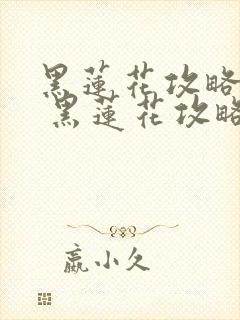 黑蓮花攻略
黑蓮花攻略
嬴小久